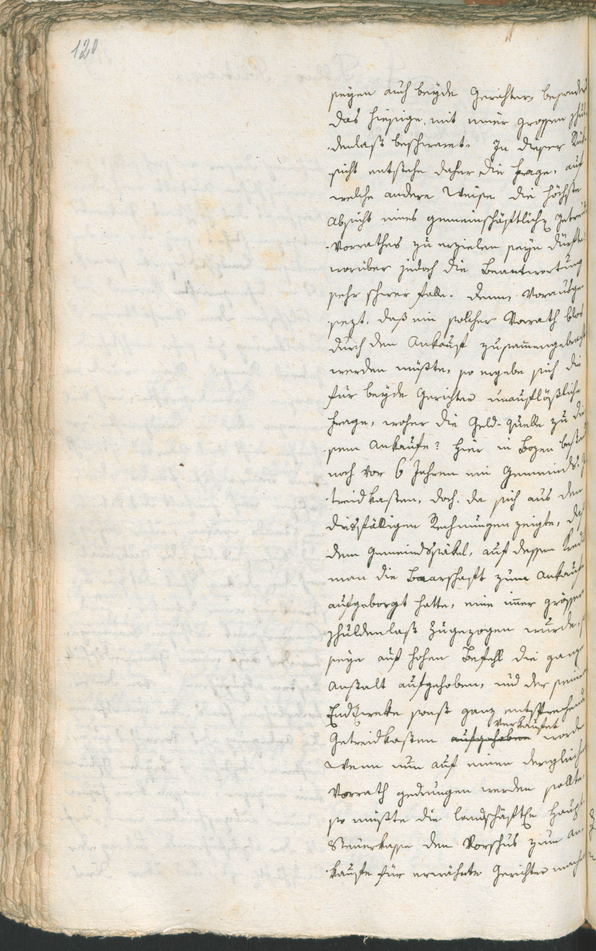 120
seyen auch beyde Gerichter besonders
das hiesige mit einer grossen Schul
denlast beschwert. In dieser Rük
sicht entstehe daher die Frage, auf
welche andere Weise die höchste
Absicht eines gemeinschäftlichen Getreid
Vorrathes zu erzielen seyn dürfte
worüber jedoch die Beantwortung
sehr schwer falle. Denn, Vorausge
sezt, daß ein solcher Vorrath blos
durch den Ankauf zusammengebracht
werden müßte, so ergebe sich die
für beyde Gerichter unauflößliche
Frage, woher die Geld-Quelle zu die
sem Ankaufe? Hier in Bozen bestand
noch vor 6 Jahren ein Gemeinds-Ge
treidkasten, doch, da sich aus den
diesfälligen Rechnungen zeigte, daß
dem Gemeindssäkel, auf dessen Kredit
man die Baarschaft zum Ankaufe
aufgeborgt hatte, eine immer grössere
Schuldenlast zugezogen wurde, so
seye auf hohen Befehl die ganze
Anstalt aufgehoben, und der seinem
Endzweke sonst ganz entsprechende
verkaufet
Getreidkasten aufgehoben worden
Wenn nun auf einen dergleichen
Vorrath gedrungen werden sollte
so müßte die landschäftle Haupt
Steuerkasse den Vorschus zum An
kaufe für erwähnte Gerichter machen